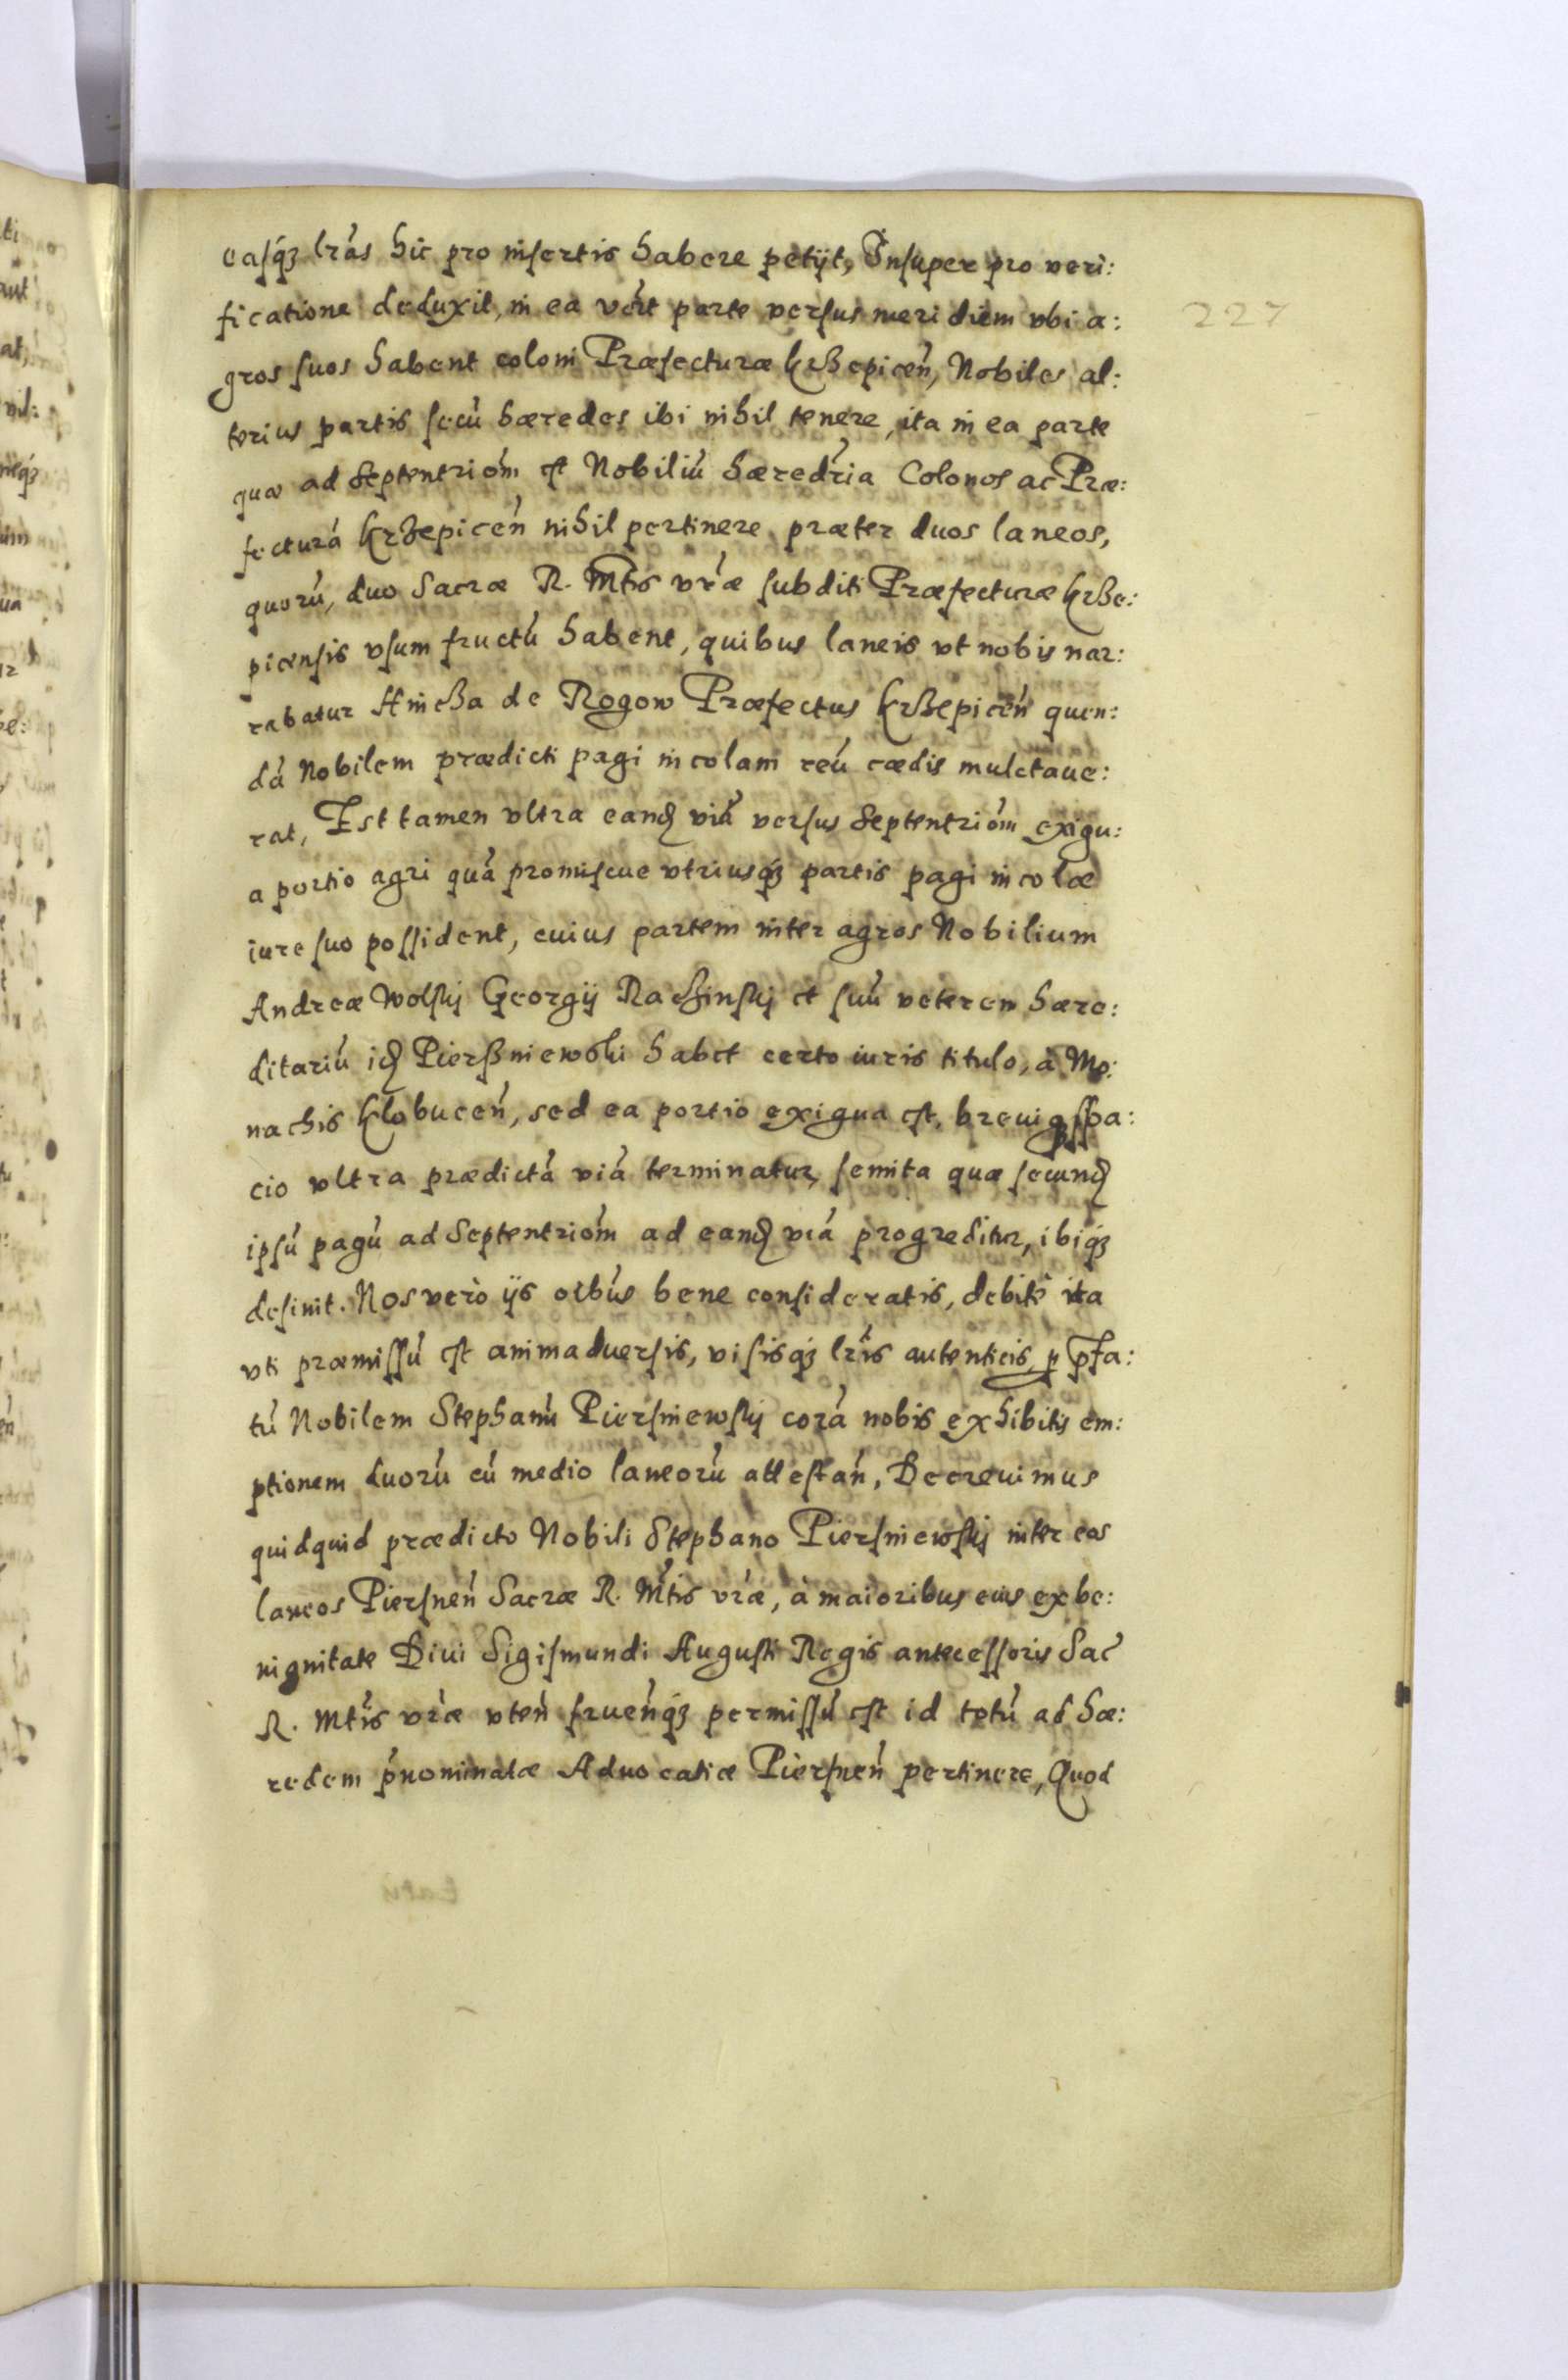 easq́ꝫ lr̃as hic pro insertis habere petijt, Insuper pro veri:
ficatione deduxit, in ea vert parte versus meridiem vbi a:
227
gros suos habent coloni Præfecturæ krzepiceń, Nobiles al:
terius partis secú hæredes ibi nihil tenere, ita in ea parte
quæ ad Septentrióm est Nobiliú hæredr̃ia Colonos ac Præ:
fecturá krzepiceń nihil pertinere præter duos laneos,
quorú, duo Sacræ R. Mtis vr̃æ subditi Præfecturæ krze:
picensis vsum fructú habent, quibus laneis vt nobis nar:
rabatur Hincza de Rogow Præfectus krzepiceń quen:
dá Nobilem prædicti pagi incolam reú cædis mulctaue:
rat, Est tamen vltra eandꝫ viá versus Septentrióm exigu:
a portio agri quá promiscue vtriusq́ꝫ partis pagi incolæ
iure suo possident, cuius partem inter agros Nobilium
Andreæ Wolskj Georgij Raczinskj et suú veterem hære:
ditariú idꝫ Pierzsniewski habet certo iuris titulo, à Mo:
nachis kłobuceń, sed ea portio exigua est, breuiqꝫ spa:
cio vltra prædictá viá terminatur, semita quæ secundꝫ
ipsú pagú ad Septentrióm ad eandꝫ viá progreditur, ibiq́ꝫ
desinit. Nos verò ijs oíbus bene consideratis, debitè ita
vti præmissú est animaduersis, visisq́ꝫ lr̃is autenticis, p pfa:
tú Nobilem Stephanú Piersniewskj corá nobis exhibitis em:
ptionem duorú cú medio laneorú attestań, Decreuimus
quidquid prædicto Nobili Stephano Piersniewskj inter eos
laneos Piersneń Sacræ R. Mtis vr̃æ, à maioribus eius ex be:
nignitate Diui Sigismundi Augusti Regis antecessoris Sac̃
R. Mtis vr̃æ vteń frueńq́ꝫ permissú est id totú ad hæ:
redem p̃nominatæ Aduocatiæ Piersneń pertinere, Quod